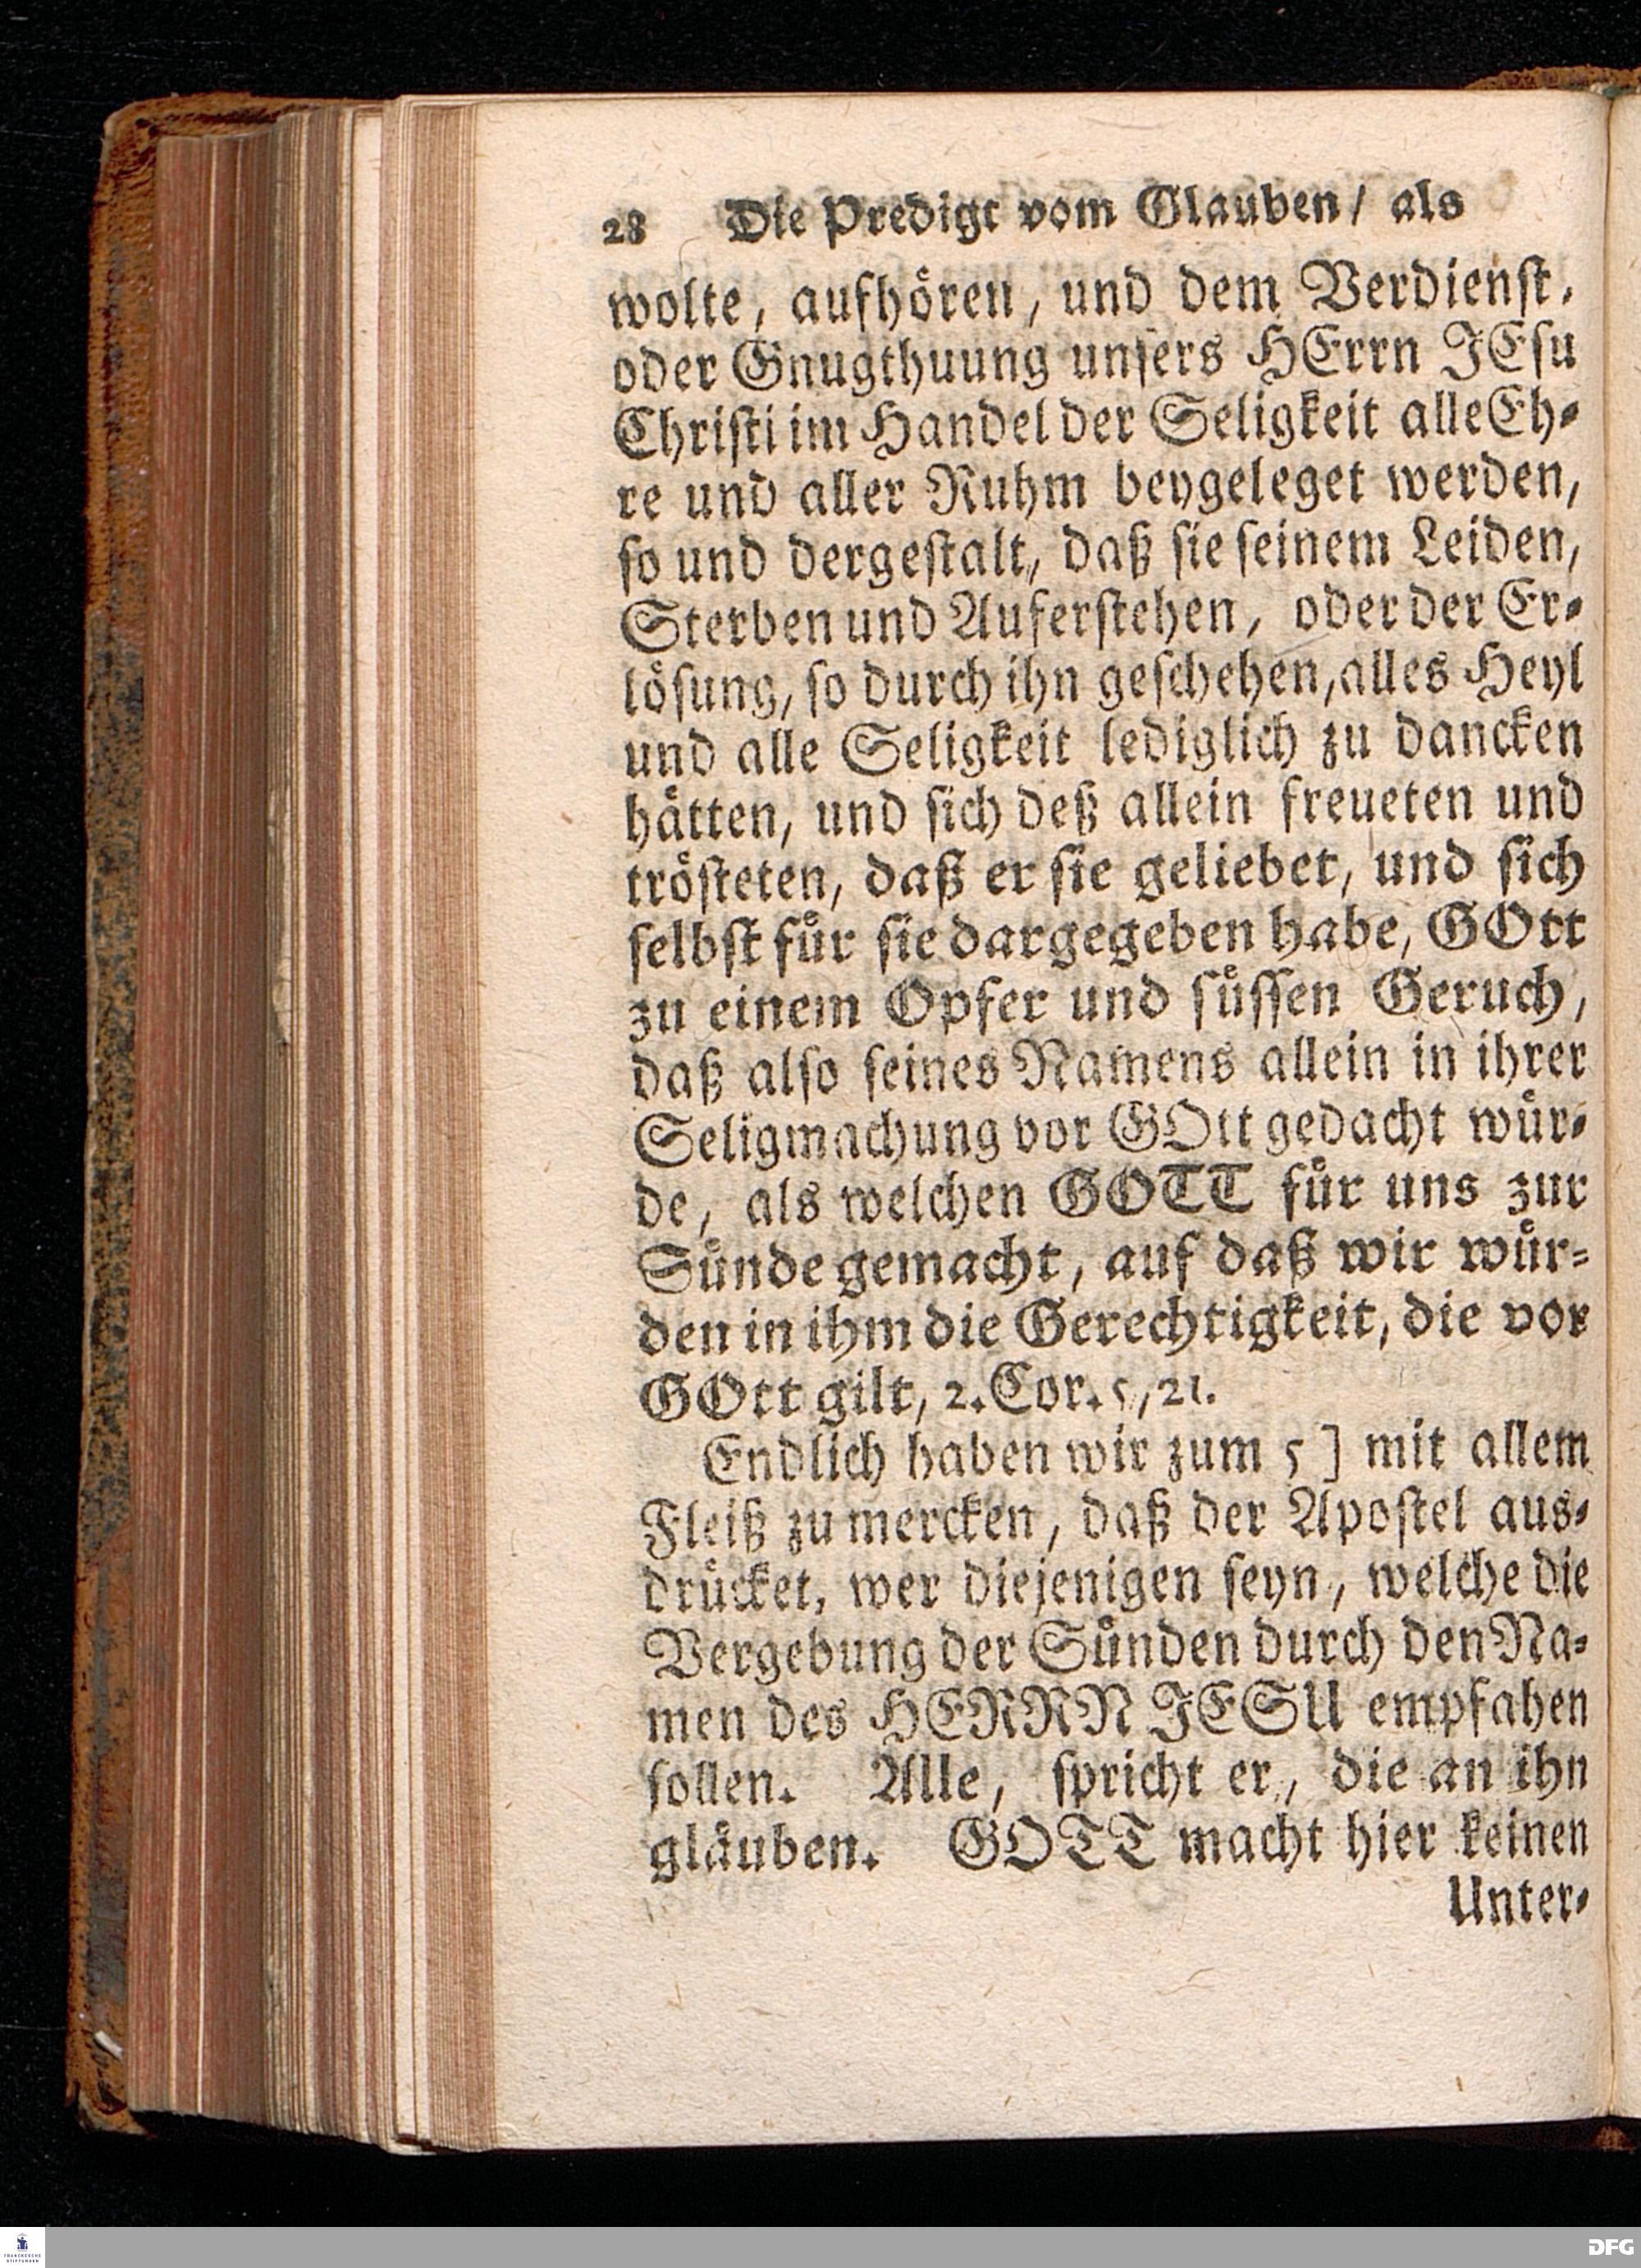 28 Die Predigt vom Glauben / als
wolte, aufhören, und dem Verdienst,
oder Gnugthuung unsers HErrn JEsu
Christi im Handel der Seligkeit alle Eh-
re und aller Ruhm beygeleget werden,
so und dergestalt, daß sie seinem Leiden,
Sterben und Auferstehen, oder der Er-
lösung, so durch ihn geschehen, alles Heyl
und alle Seligkeit lediglich zu dancken
hätten, und sich deß allein freueten und
trösteten, daß er sie geliebet, und sich
selbst für sie dargegeben habe, GOtt
zu einem Opfer und süssen Geruch,
daß also seines Namens allein in ihrer
Seligmachung vor GOtt gedacht wür-
de, als welchen GOTT für uns zur
Sünde gemacht, auf daß wir wür-
den in ihm die Gerechtigkeit, die vor
GOtt gilt, 2. Cor. 5, 21.
Endlich haben wir zum 5 ] mit allem
Fleiß zu mercken, daß der Apostel aus-
drücket, wer diejenigen seyn, welche die
Vergebung der Sünden durch den Na-
men des HERRN JESU empfahen
sollen. Alle, spricht er, die an ihn
gläuben. GOTT macht hier keinen
Unter-
FRANCKESCHE
STIFTUNGEN
DFG